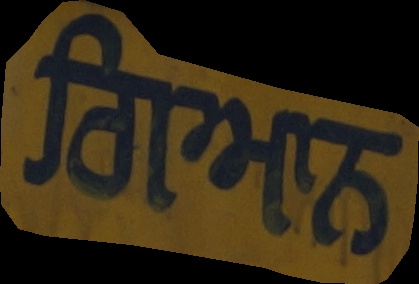 ਗਿਆਨ